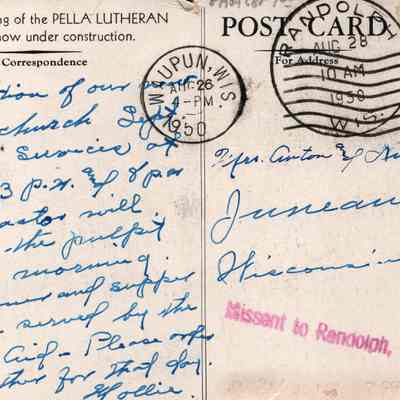 ng of the PELLA LUTHERAN
now under construction.
Correspondence
POST CARD
For Address
WAUPUN, WIS.
AUG 26
4-PM
1950
RANDOLPH
AUG 28
10 AM
1950
WIS.
tion of our new
church Sept
Services at
3 P.M. & 8 P.M
astor will
the pulpit
morning
and supper
served by the
Aid - Please
for that day.
Mollie
Mrs. Anton
Juneau
Wisconsin
Missent to Randolph,